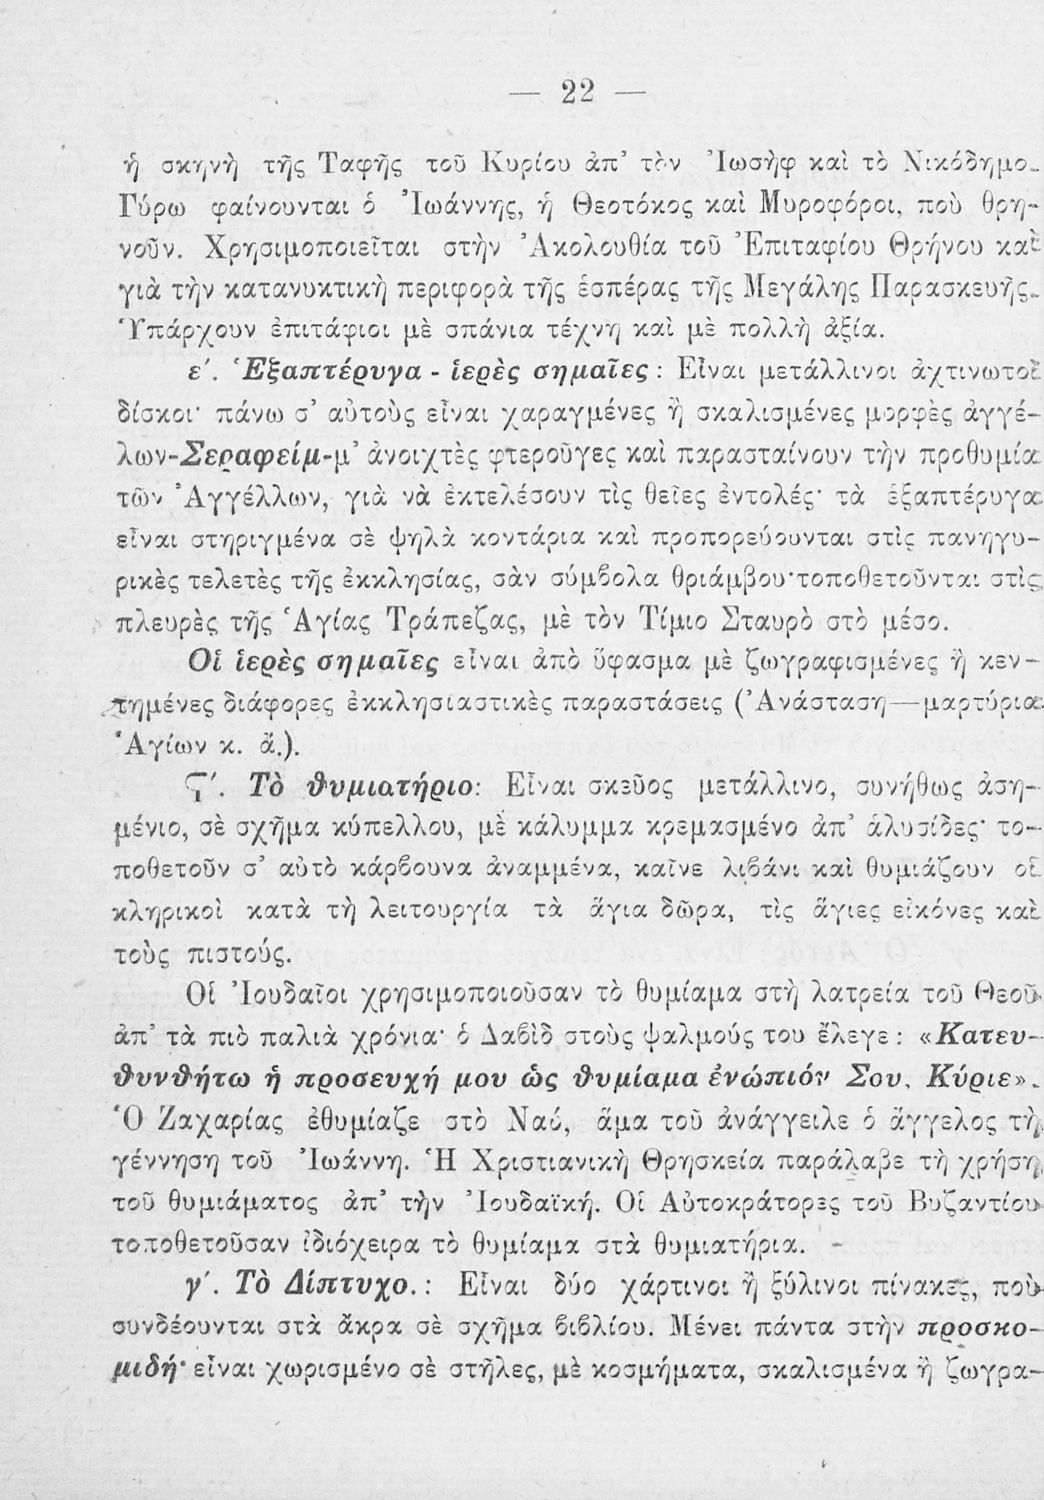 — 22 —
ἡ σκηνὴ τῆς Ταφῆς τοῦ Κυρίου ἀπ’ τὸν Ἰωσὴφ καὶ τὸ Νικόδημο.
Γύρω φαίνουνται ὁ Ἰωάννης, ἡ Θεοτόκος καὶ Μυροφόροι, ποὺ θρη-
νοῦν. Χρησιμοποιεῖται στὴν Ἀκολουθία τοῦ Ἐπιταφίου Θρήνου καὶ
γιὰ τὴν κατανυκτικὴ περιφορὰ τῆς ἑσπέρας τῆς Μεγάλης Παρασκευῆς.
Ὑπάρχουν ἐπιτάφιοι μὲ σπάνια τέχνη καὶ μὲ πολλὴ ἀξία.
ε΄. Ἑξαπτέρυγα - ἱερὲς σημαῖες : Εἶναι μετάλλινοι ἀχτινωτοὶ
δίσκοι· πάνω σ’ αὐτοὺς εἶναι χαραγμένες ἢ σκαλισμένες μορφὲς ἀγγέ-
λων-Σεραφείμ-μ’ ἀνοιχτὲς φτεροῦγες καὶ παρασταίνουν τὴν προθυμία
τῶν Ἀγγέλλων, γιὰ νὰ ἐκτελέσουν τὶς θεῖες ἐντολές· τὰ ἑξαπτέρυγα
εἶναι στηριγμένα σὲ ψηλὰ κοντάρια καὶ προπορεύουνται στὶς πανηγυ-
ρικὲς τελετὲς τῆς ἐκκλησίας, σὰν σύμβολα θριάμβου·τοποθετοῦνται στὶς
πλευρὲς τῆς Ἁγίας Τράπεζας, μὲ τὸν Τίμιο Σταυρὸ στὸ μέσο.
Οἱ ἱερὲς σημαῖες εἶναι ἀπὸ ὕφασμα μὲ ζωγραφισμένες ἢ κεν-
τημένες διάφορες ἐκκλησιαστικὲς παραστάσεις (Ἀνάσταση—μαρτύρια
Ἁγίων κ. ἄ.).
Ϛ΄. Τὸ θυμιατήριο: Εἶναι σκεῦος μετάλλινο, συνήθως ἀση-
μένιο, σὲ σχῆμα κύπελλου, μὲ κάλυμμα κρεμασμένο ἀπ’ ἁλυσίδες· το-
ποθετοῦν σ’ αὐτὸ κάρβουνα ἀναμμένα, καῖνε λιβάνι καὶ θυμιάζουν οἱ
κληρικοὶ κατὰ τὴ λειτουργία τὰ ἅγια δῶρα, τὶς ἅγιες εἰκόνες καὶ
τοὺς πιστούς.
Οἱ Ἰουδαῖοι χρησιμοποιοῦσαν τὸ θυμίαμα στὴ λατρεία τοῦ Θεοῦ
ἀπ’ τὰ πιὸ παλιὰ χρόνια· ὁ Δαβὶδ στοὺς ψαλμούς του ἔλεγε : «Κατευ-
θυνθήτω ἡ προσευχή μου ὡς θυμίαμα ἐνώπιόν Σου, Κύριε».
Ὁ Ζαχαρίας ἐθυμίαζε στὸ Ναό, ἅμα τοῦ ἀνάγγειλε ὁ ἄγγελος τὴ
γέννηση τοῦ Ἰωάννη. Ἡ Χριστιανικὴ Θρησκεία παράλαβε τὴ χρήση
τοῦ θυμιάματος ἀπ’ τὴν Ἰουδαϊκή. Οἱ Αὐτοκράτορες τοῦ Βυζαντίου
τοποθετοῦσαν ἰδιόχειρα τὸ θυμίαμα στὰ θυμιατήρια.
γ΄. Τὸ Δίπτυχο. : Εἶναι δύο χάρτινοι ἢ ξύλινοι πίνακες, ποὺ
συνδέουνται στὰ ἄκρα σὲ σχῆμα βιβλίου. Μένει πάντα στὴν προσκο-
μιδή· εἶναι χωρισμένο σὲ στῆλες, μὲ κοσμήματα, σκαλισμένα ἢ ζωγρα-